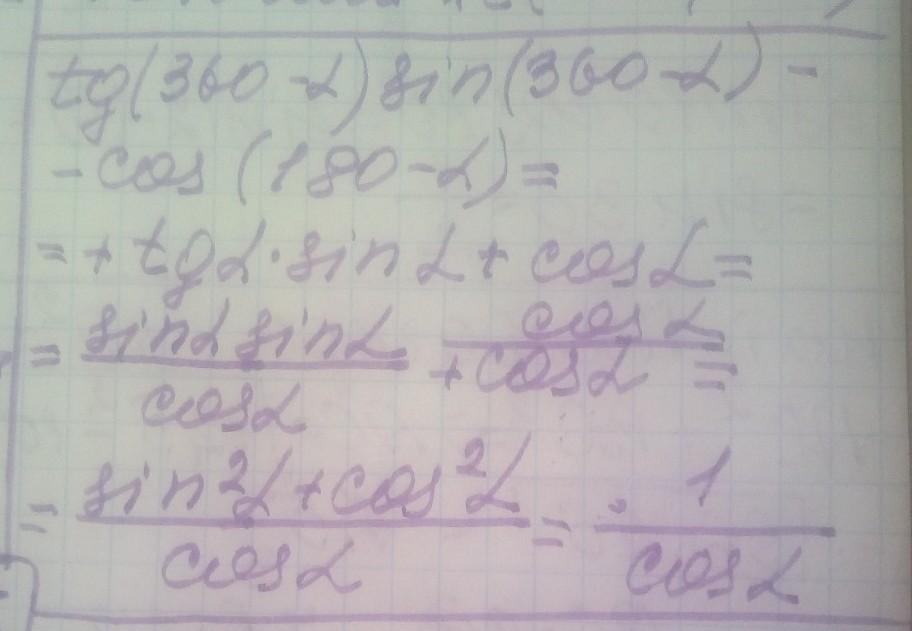 tg(360-α)sin(360-α)-
-cos(180-α)=
=+tgα·sinα+cosα=
= sinα sinα / cosα + cosα / cosα =
= sin²α+cos²α / cosα = 1 / cosα